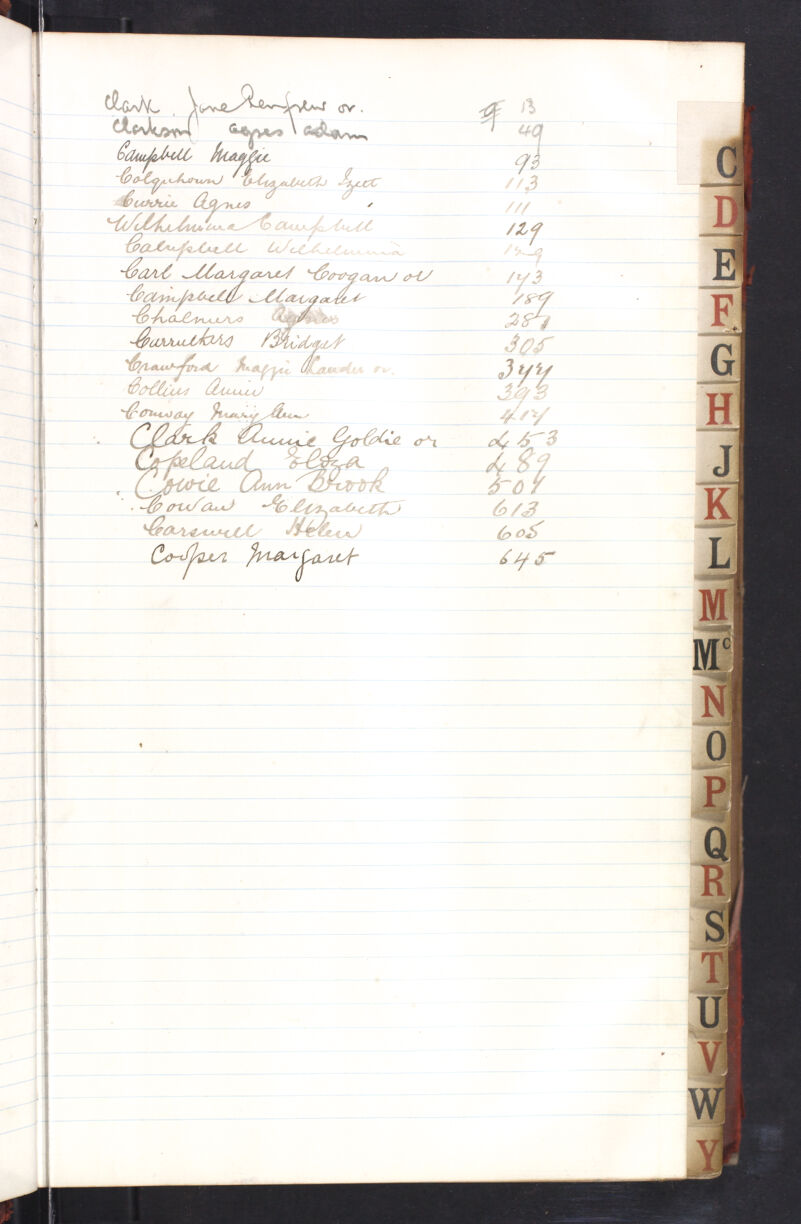 Clark Jane Renfrew or. 13
Clarkson Agnes Adam 49
Campbell Maggie 93
Colquhoun Elizabeth Izett 113
Currie Agnes 111
Wilhelmina Campbell 129
Campbell Wilhelmina 129
Carl Margaret Coogan or 143
Campbell Margaret 189
Chalmers Agnes 281
Curruthers Bridget 305
Crawford Maggie Lauder or. 344
Collins Annie 393
Conway Mary Ann 414
Clark Annie Goldie or 453
Copeland Eliza 489
Cowie Ann Brook 501
Cowan Elizabeth 613
Carswell Helen 605
Cooper Margaret 645
C
D
E
F
G
H
J
K
L
M
Mc
N
O
P
Q
R
S
T
U
V
W
Y